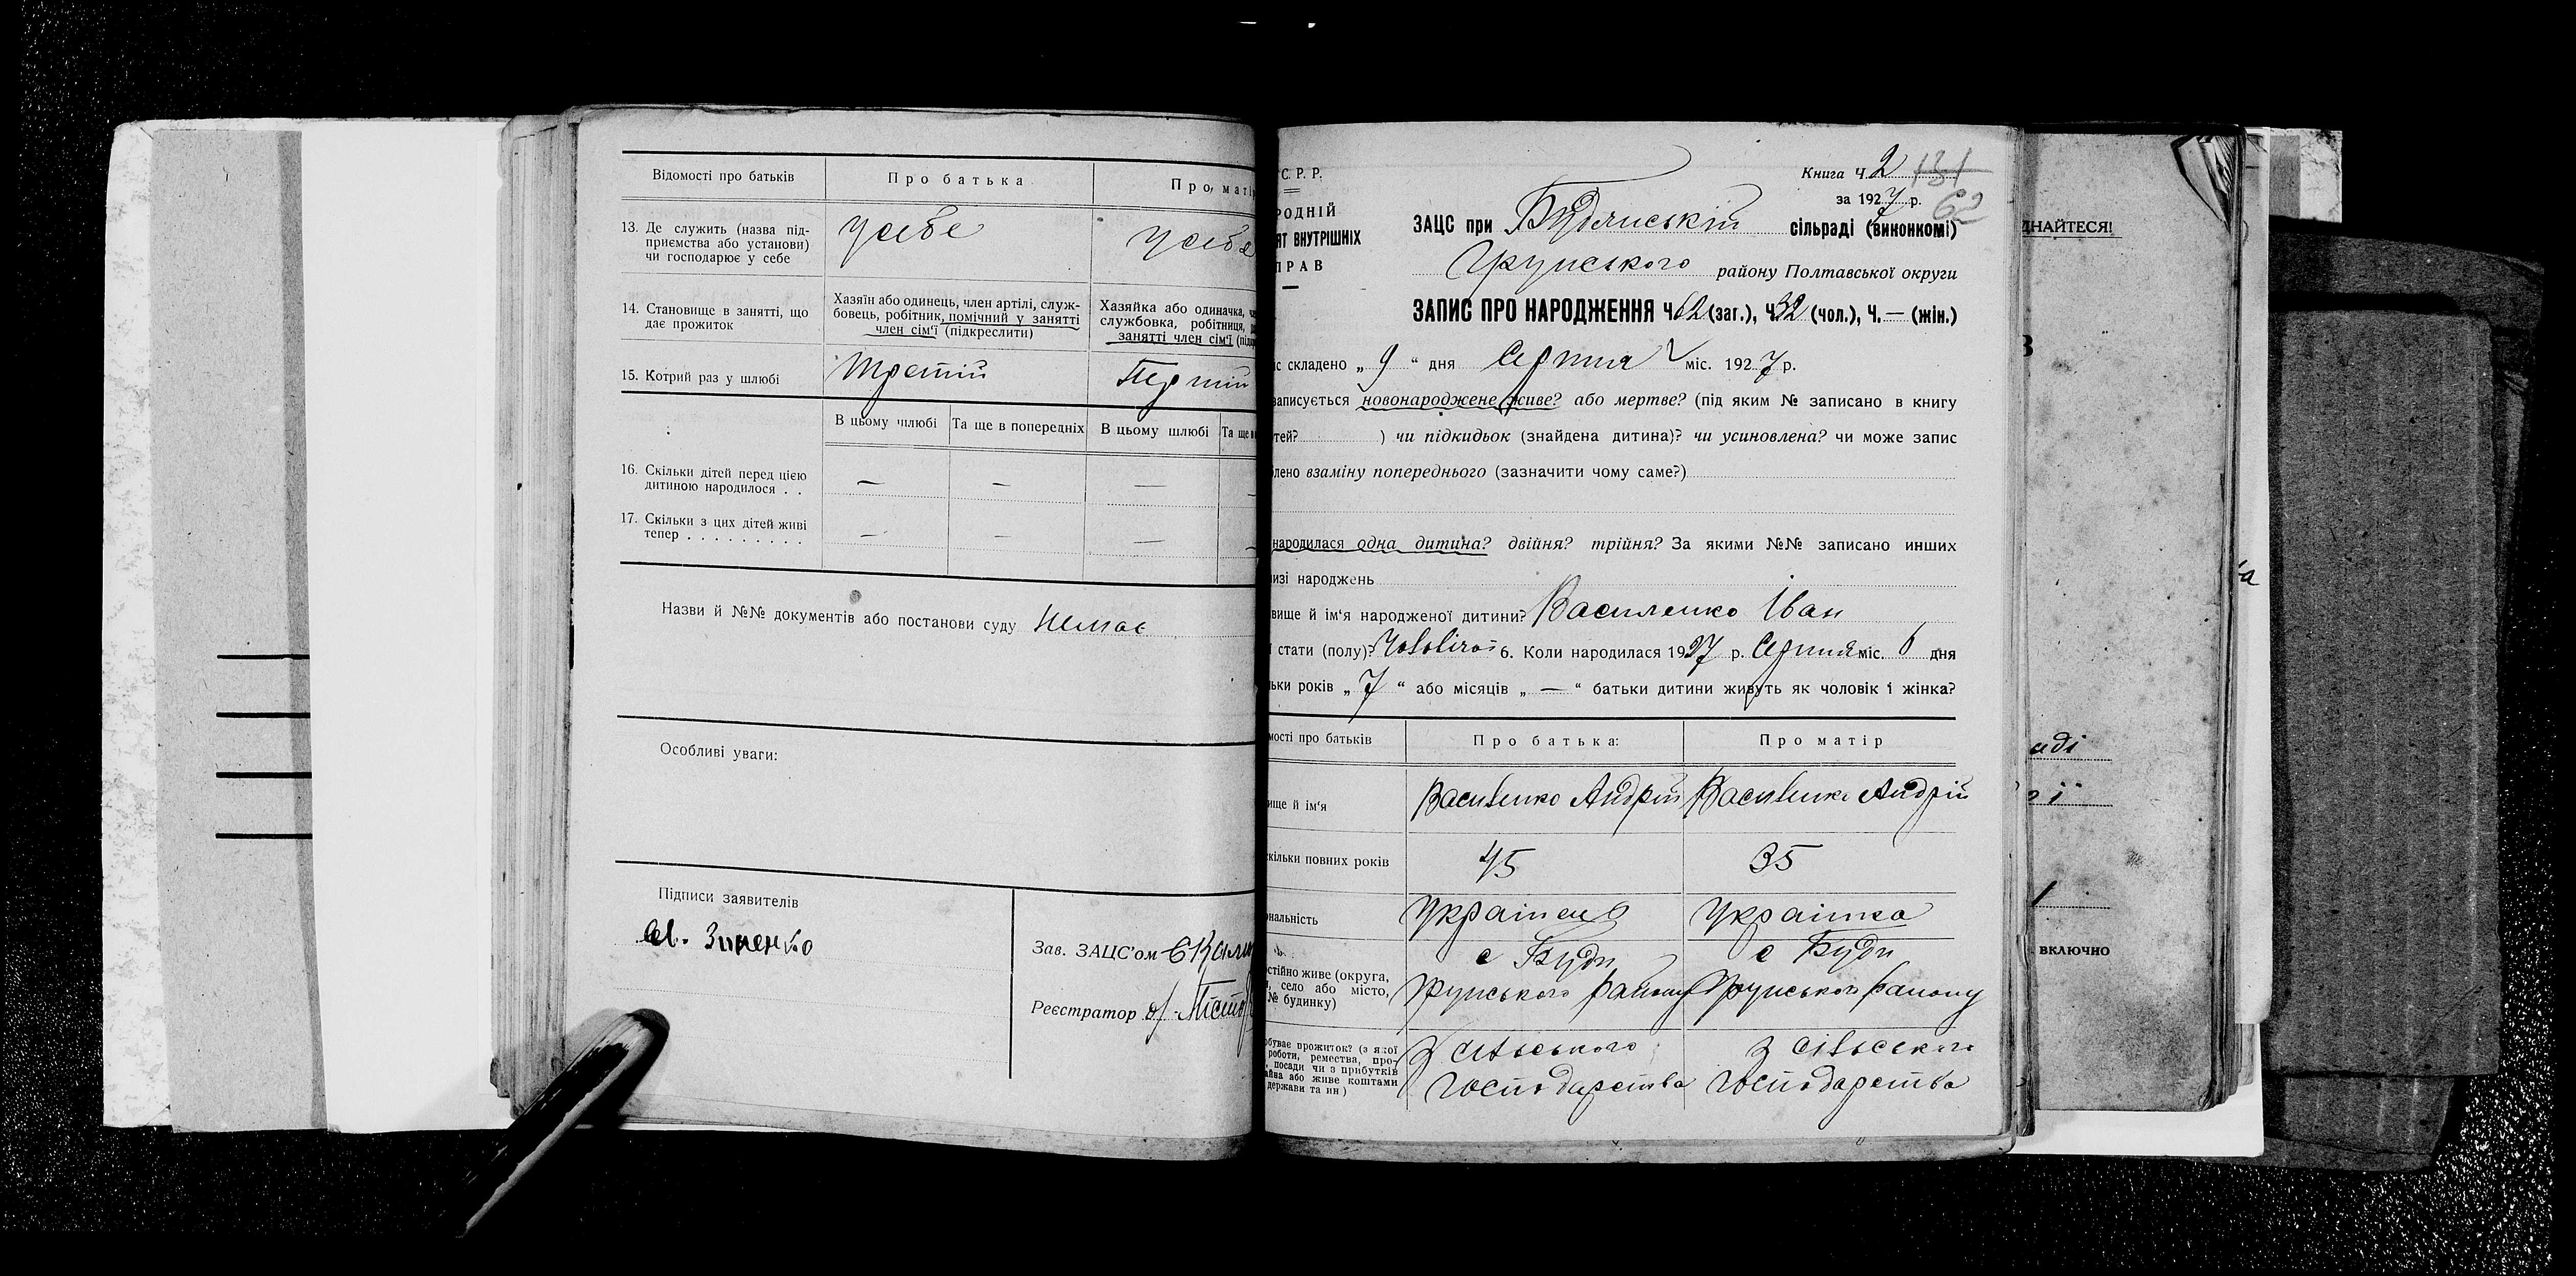 Відомості про батьків
Про батька
Про маті
13. Де служить (назва під-
приємства або установи)
чи господарює у себе
у себе
у себе
14. Становище в занятті, що
дає прожиток
Хазяїн або одинець, член артілі, служ-
бовець, робітник, помічний у занятті
член сім'ї (підкреслити)
Хазяйка або одиначка,
службовка, робітниця,
занятті член сім'ї
15. Котрий раз у шлюбі
Третій
В цьому шлюбі
Та ще в попередніх
В цьому шлюбі
Та ще
16. Скільки дітей перед цією
дитиною народилося . .
— — —
17. Скільки з цих дітей живі
тепер . . . . . . . . .
— — —
Назви й №№ документів або постанови суду Немає
Особливі уваги:
Підписи заявителів
Зиненко
Зав. ЗАЦС'ом
Реєстратор
С. Р. Р.
РОДНІЙ
ЯТ ВНУТРІШНІХ
ПРАВ
Книга Ч. 2 131
за 1927 р. 62
ЗАЦС при Будянській сільраді (виконкомі)
Грунського району Полтавської округи
ЗАПИС ПРО НАРОДЖЕННЯ Ч 62 (заг.), Ч 32 (чол.), Ч. — (жін.)
с складено „ 9 “ дня Серпня міс. 1927 р.
записується новонароджене живе? або мертве? (під яким № записано в книгу
тей? ) чи підкидьок (знайдена дитина)? чи усиновлена? чи може запис
блено взаміну попереднього (зазначити чому саме?)
народилася одна дитина? двійня? трійня? За якими №№ записано инших
изі народжень
вище й ім'я народженої дитини? Василенко Іван
стати (полу)? Чоловічої 6. Коли народилася 1927 р. Серпня міс. 6 дня
льки років „ 7 “ або місяців „ — “ батьки дитини живуть як чоловік і жінка?
мості про батьків
Про батька:
Про матір
вище й ім'я
Василенко Андрій
Василенко Андрій
скільки повних років
45
35
ональність
Українець
Українка
остійно живе (округа,
н, село або місто,
№ будинку)
с Буди
Грунського району
с Буди
Грунського району
обуває прожиток? (з якої
роботи, ремества, про-
посади чи з прибутків
айна або живе коштами
держави та ин)
З сільського
господарства
З сільського
господарства
ДНАЙТЕСЯ!
В
аді
ї
включно